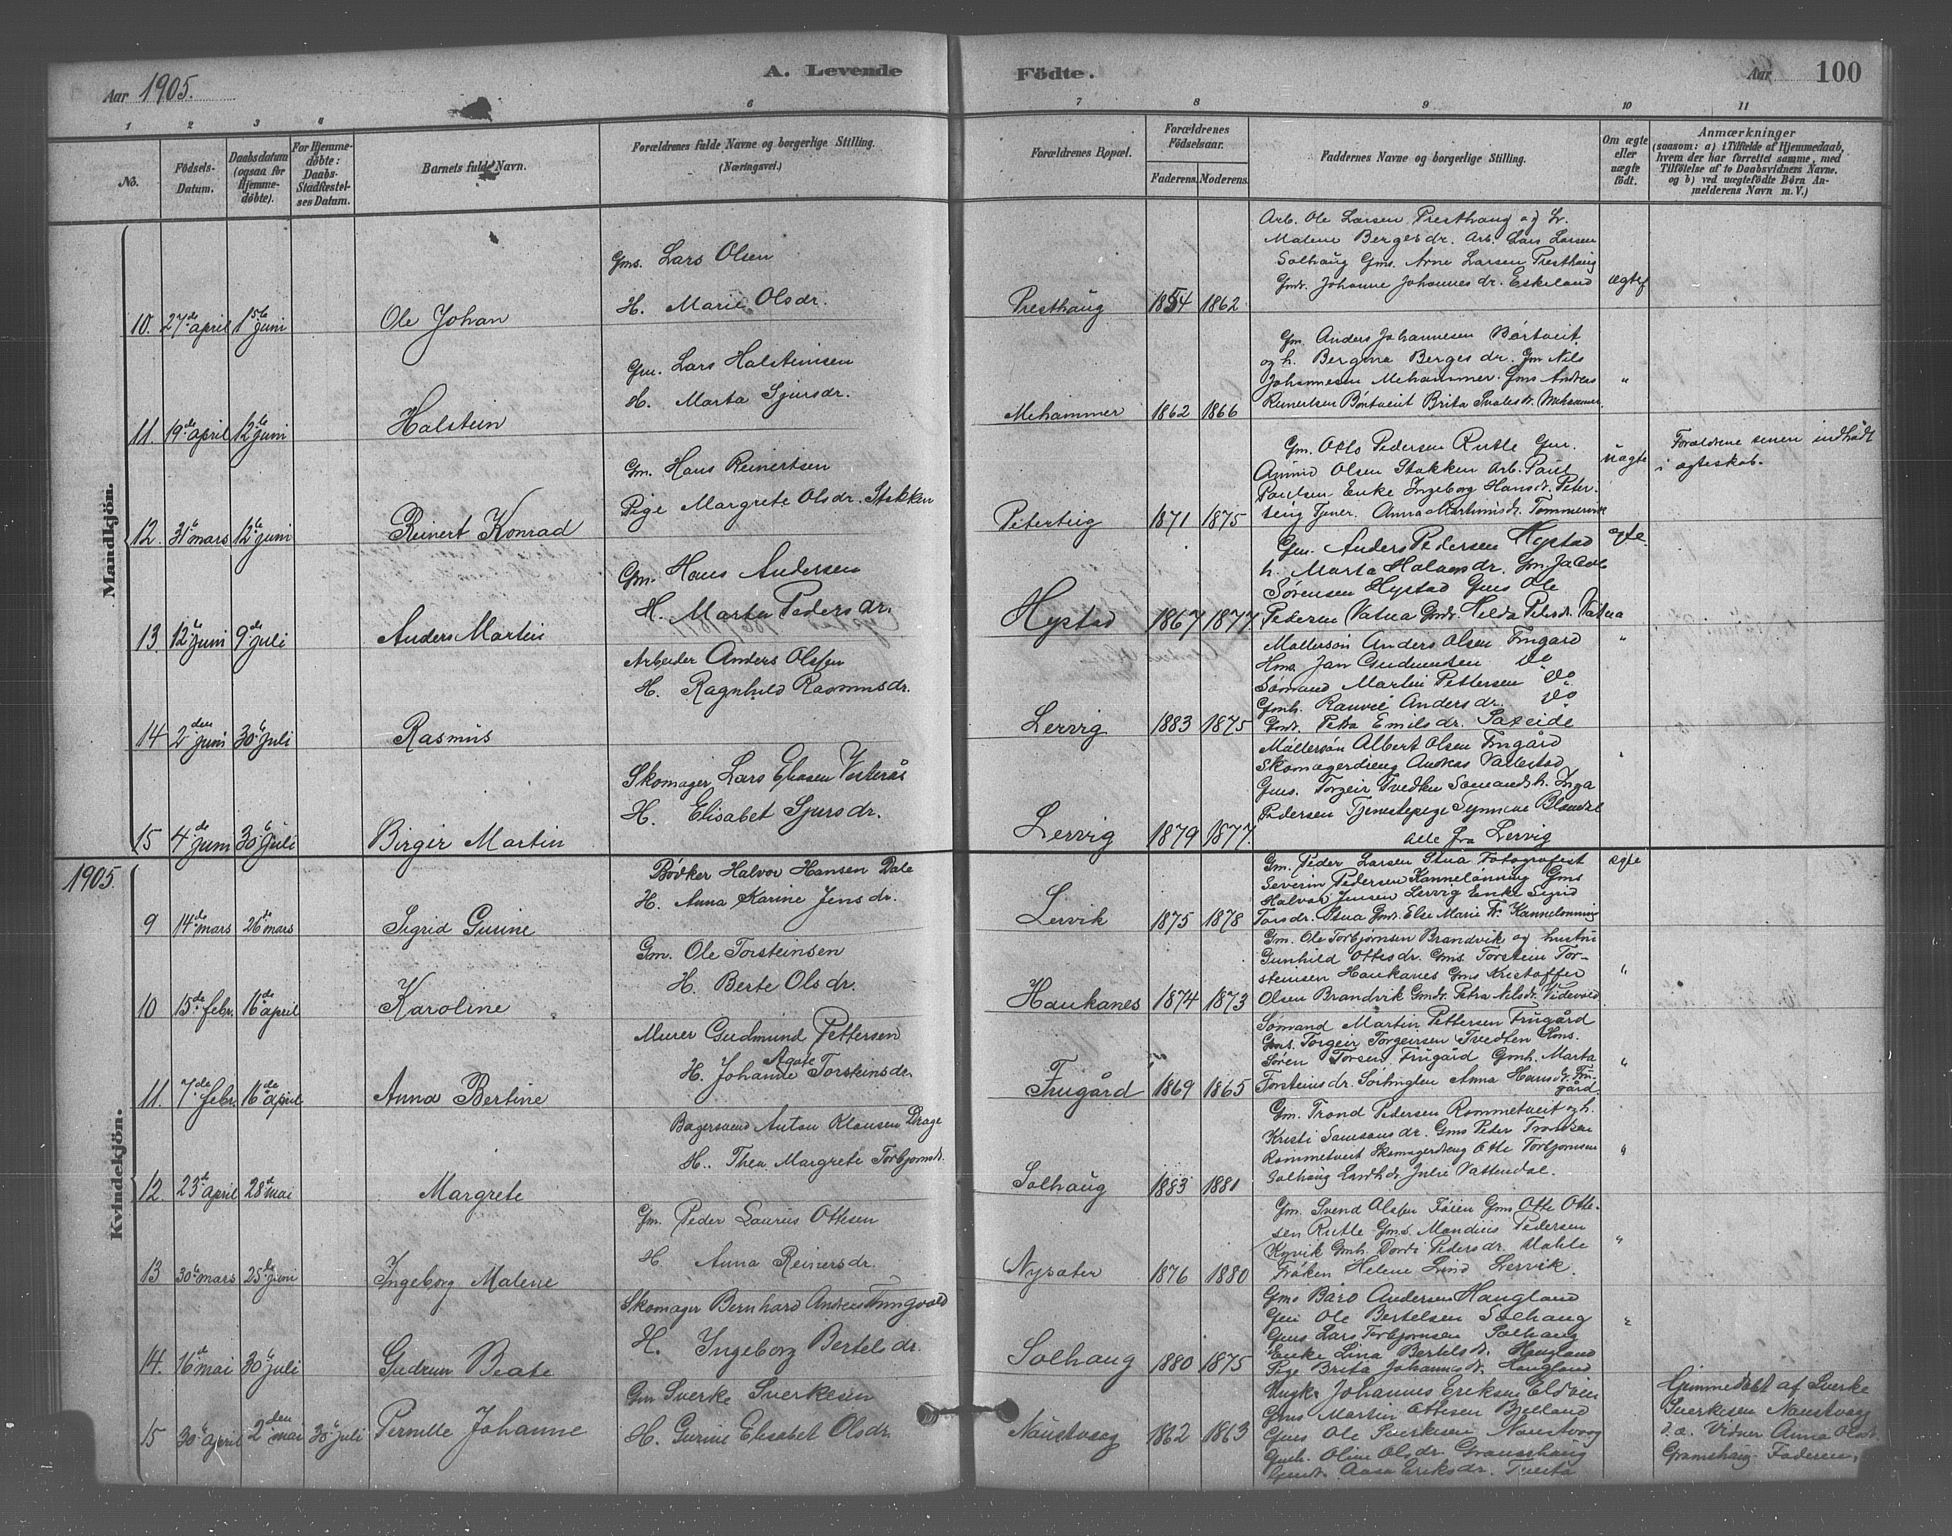 Aar 1905.
A. Levende Födte.
Aar 100
1 2 3 6 6 7 8 9 10 11
No.
Födsels-Datum.
Daabsdatum (ogsaa for Hjemme-döbte).
For Hjemme-döbte: Daabs-Stadfæstel-ses Datum.
Barnets fulde Navn.
Forældrenes fulde Navne og borgerlige Stilling. (Næringsvei.)
Forældrenes Bopæl.
Forældrenes Födselsaar.
Faderens. Moderens.
Faddernes Navne og borgerlige Stilling.
Om ægte eller uægte födt.
Anmærkninger
(saasom: a) i Tilfælde af Hjemmedaab, hvem der har forrettet samme, med Tilföielse af to Daabsvidners Navne. og b) ved uægtefödte Börn An-melderens Navn m. V.)
Mandkjön.
10. 27de april 1ste juni Ole Johan
Gms. Lars Olsen
H. Marie Olsdr.
Presthaug 1854 1862
Arb. Ole Larsen Presthaug og h.
Malene Bergesdr. Arb. Lars Larsen
Solhaug Gms. Arne Larsen Presthaug
Gmdr. Johanne Johannesdr. Eskeland
ægtef
11. 19de april 12te juni Halstein
Gm. Lars Halsteinsen
H. Marta Sjursdr.
Mehammer 1862 1866
Gm. Anders Johannesen Börtveit
og h. Bergina Bergesdr. Gm Nils
Johannesen Mehammer. Gms Andreas
Reinertsen Börtveit Brita Mehammer
"
12. 31te mars 12te juni Reinert Konrad
Gm. Hans Reinertsen
Pige Margrete Olsdr. Stokken
Petersteig 1871 1875
Gm. Otto Pedersen Rutle Gm.
Amund Olsen Stokken Arb. Paul
Paulsen Enke Ingeborg Hansdr. Peter-
teig Tjener. Anna Martinusdr. Tömmervik
uægte
Forældrene senere indtrådt
i ægteskab.
13. 12te juni 9de juli Anders Martin
Gm. Hans Andersen
H. Marta Pedersdr.
Hystad 1867 1877
Gm. Anders Pedersen Hystad
h. Marta Halvorsdr. Gm Jacob
Sörensen Hystad Gms Ole
Pedersen Vatna Gmdr. Hilda Pedersdr. Vatna
ægte.
14 2den juni 30te juli Rasmus
Arbeider Anders Olsen
H. Ragnhild Rasmusdr.
Lervig 1883 1875
Mallersön Anders Olsen Frugard
Hms. Jan Gudmundsen Do
Sömand Martin Pettersen Do
Gmh. Rauvei Andersdr. Do
Gmdr. Petra Emilsdr. Sæteide
"
15 4de juni 30te juli Birgir Martin
Skomager Lars Eliasen Vesterås
H. Elisabet Sjursdr.
Lervig 1879 1877.
Möllersön Albert Olsen Frugård
Skomagerdreng Andreas Vallestad
Gms. Torgeir Tvedten Sömandsh. Inga
Pedersen Tjenestepige Synneve
alle fra Lervig
"
1905.
Kvindekjön.
9 14de mars 26de mars Sigrid Gurine
Bödker Halvor Hansen Dale
H. Anna Karine Jensdr.
Lervik 1875 1878
Gm. Peder Larsen Stua Fotografest
Severin Pedersen Kannelönning Gms
Halvor Jensen Lervig Enke Sigrid
Torsdr. Stua Gmdr. Else Marie Kannelönning
ægte
10 15de febr. 16de april Karoline
Gm. Ole Torsteinsen
H. Berte Olsdr.
Haukanes 1874 1873
Gm. Ole Torbjørnsen Brandvik og hustru
Gunhild Ottesdr. Gms Torstein Tor-
steinsen Haukanes Gms Kristoffer
Olsen Brandvik Gmdr. Petra Nilsdr. Videvold
"
11. 7de febr. 16de april Anna Bertine
Murer Gudmund Pettersen
H. Johanne Agate Torsteinsdr.
Frugård 1869 1865
Sömand Martin Pettersen Frugård
Gms. Torgeir Torgeirsen Tvedten Hms.
Sören Torsen Frugård Gmh. Marta
Torsteinsdr. Anna Hansdr. Fru-
gård
"
12. 23de april 28de mai Margrete
Bagersvend Anton Klausen Drage
H. Thea Margrete Torbjørnsdr.
Solhaug 1883 1881
Gm. Trond Pedersen Rommetveit og h.
Kristi Samsonsdr. Gms Peder Trondsen
Rommetveit Skomagerdreng Otte Torbjørnsen
Solhaug Landhdr Julie Vattendal.
"
13 30te mars 25de juni Ingeborg Malene
Gm. Peder Laurius Ottesen
H Anna Reinersdr.
Nysæter 1876 1880
Gm. Svend Olsen Föien Gms Otte Otte-
sen Rutle Gms. Mandius Pedersen
Kyvik Gmh. Dorti Pedersdr. Vahle
Fröken Helene Lund Lervik.
"
14. 16de mai 30te juli Gudrun Beate
Skomager Bernhard Andreas Tungvold
H. Ingeborg Berteldr.
Solhaug 1880 1875
Gms Bård Andersen Haugland
Gm Ole Bertelsen Solhaug
Gms Lars Torbjørnsen Solhaug
Enke Lina Bertelsdr. Haugland
Pige Brita Johannesdr. Haugland
"
15 30te april 2den mai 30te juli Pernille Johanne
Gm Sverke Sverkesen
H. Gurine Elisabet Olsdr.
Naustvaag 1862 1863
Ungk. Johannes Eriksen Eldöien
Gms Martin Ottesen Bjelland
Gms Ole Sverkesen Naustvaag
Gmh. Oline Olsdr. Granshaug
Gmdr. Aasa Eriksdr. Tveita
Hjemmedöbt af Sverke
Sverkesen Naustvaag
d.æ. Vidner Anna Olsdr.
Gramshaug. Faderen.